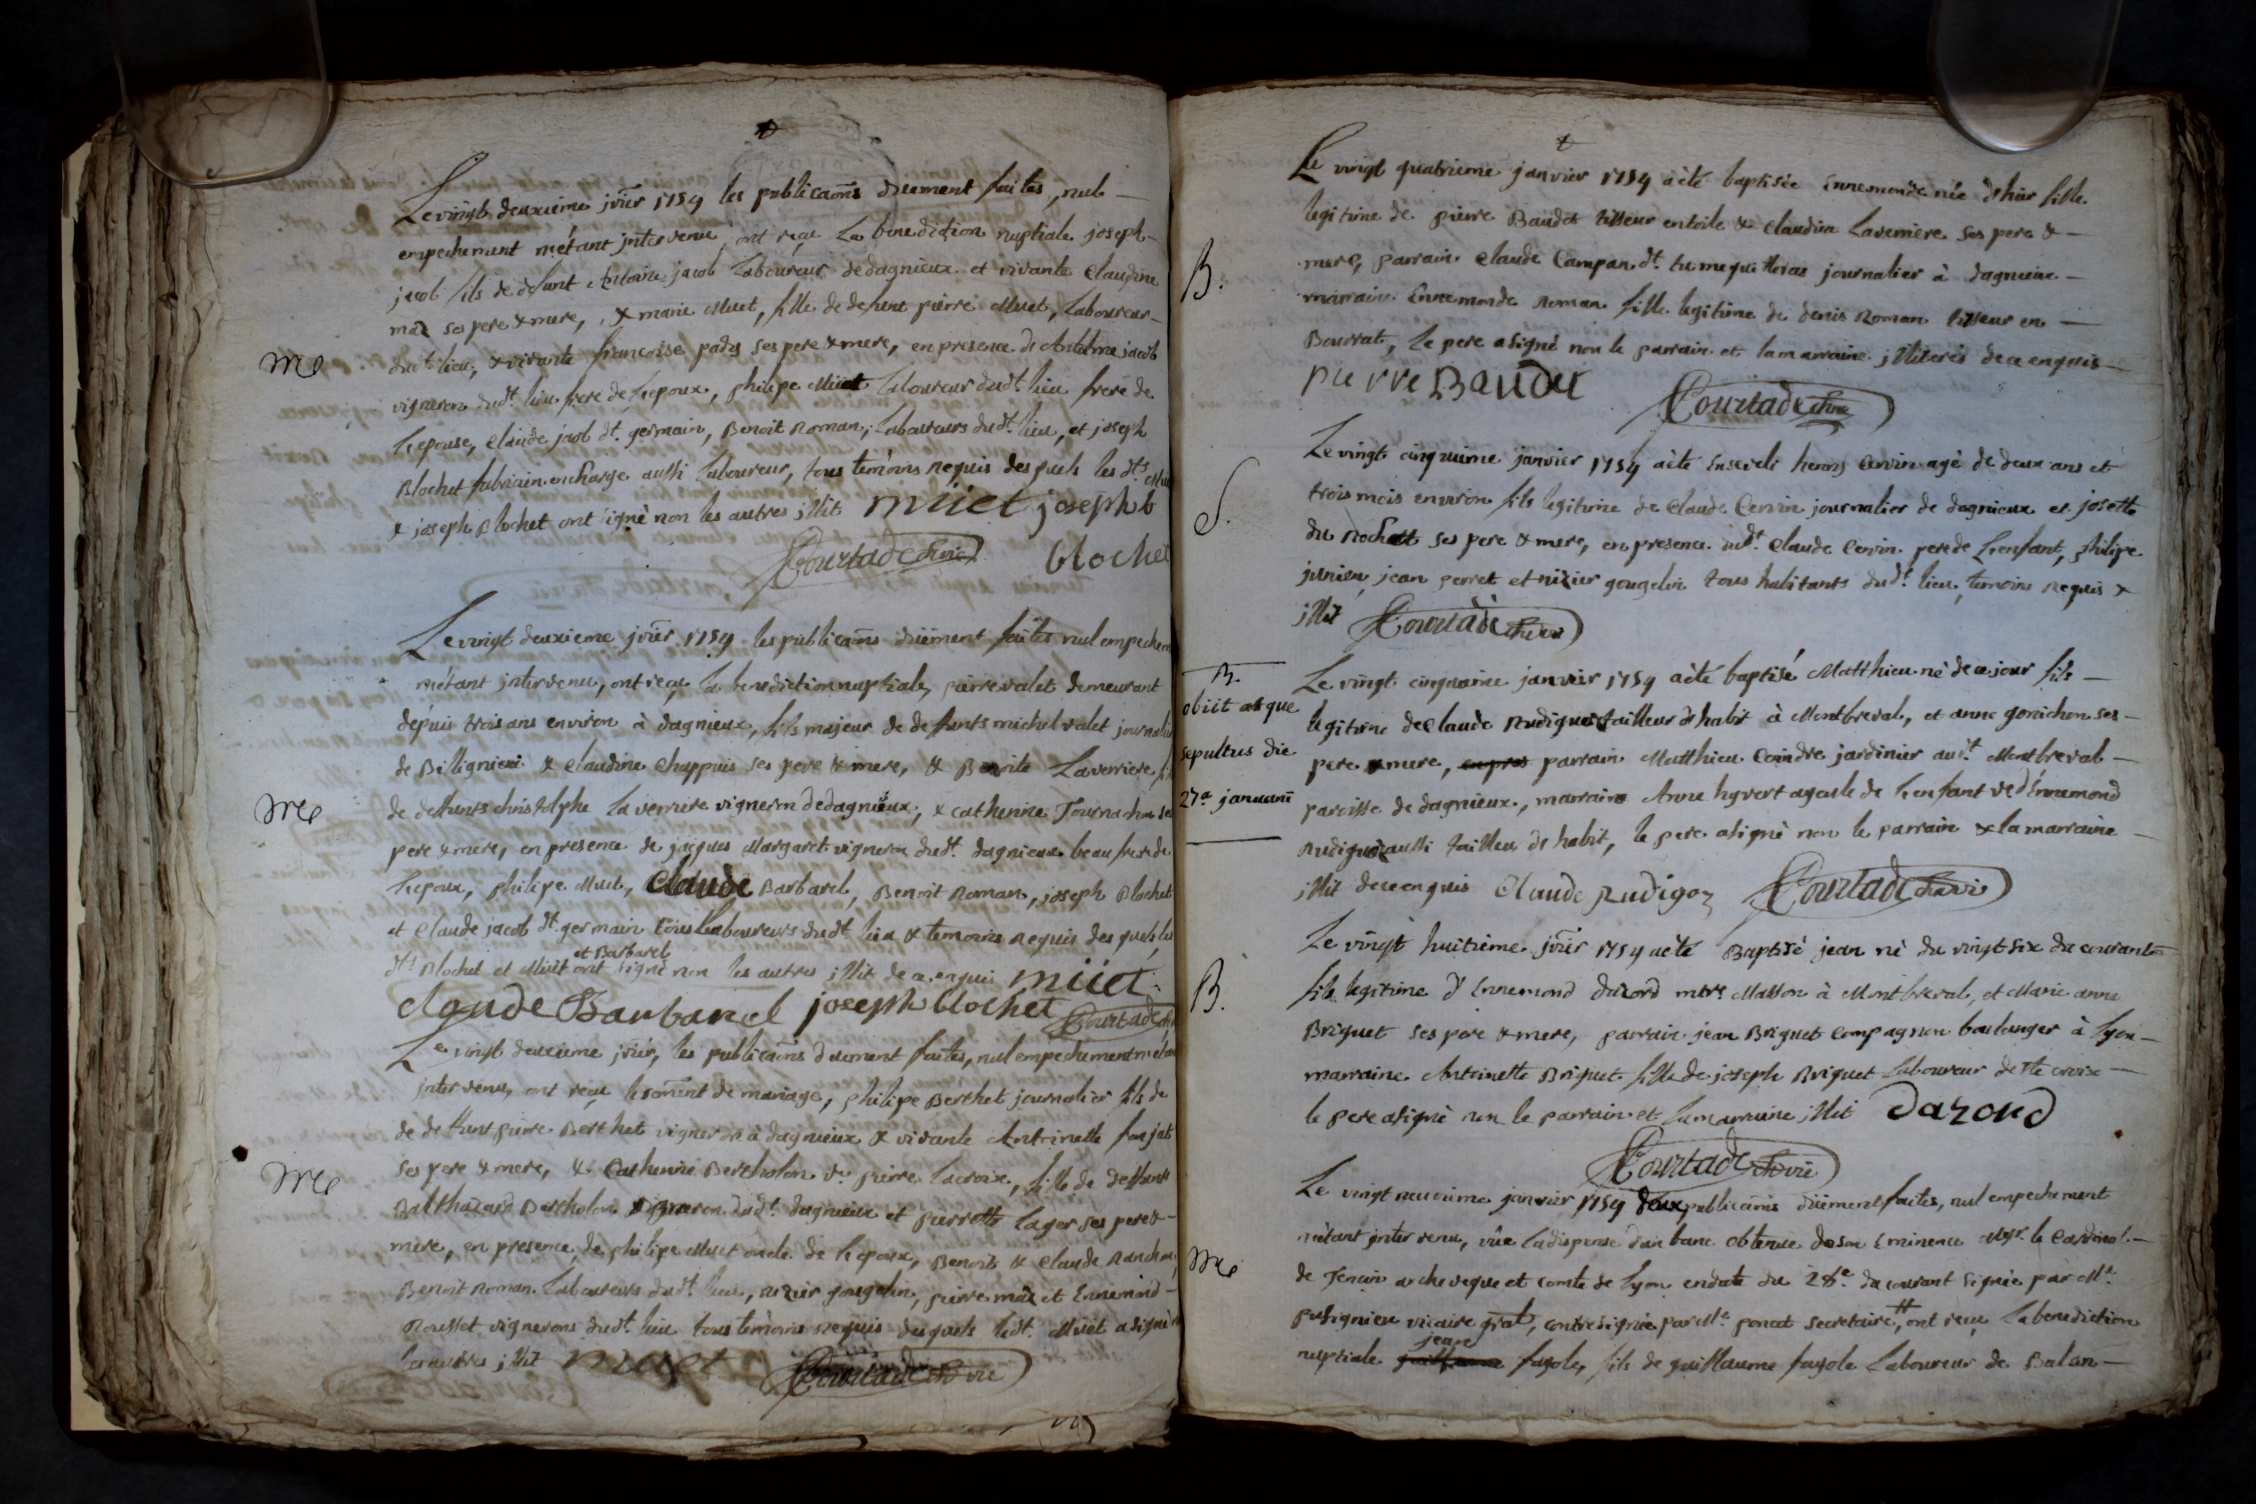 Le vingt deuxieme jvier 1754 les publicaons duement faites, nul
empechement n'étant intervenu ont reçu La benediction nuptiale joseph
jacob fils de defunt Antoine jacob Laboureur de dagnieux et vivante Claudine
maz ses pere & mere, & marie Muet, fille de defunt pierre Muet, Laboureur
dudt lieu, & vivante francoise ses pere & mere, en presence d'Antelme jacob
vigneron dudt lieu frere de L'epoux, philipe Muet Laboureur dudt lieu frere de
L'epouse, Claude jacob dt germain, Benoit Roman, Laboureurs dudt lieu, et joseph
Blochet fabricien en charge aussi laboureur, tous temoins requis des quels les dts Mu
& joseph Blochet ont signé non les autres illit miiet joseph b
Courtade
blochet
me
Le vingt deuxieme jvier 1754 les publicaons düement faites nul empechem
n'étant intervenu, ont reçu la benediction nuptiale, pierre valet demeurant
depuis trois ans environ à dagnieux, fils majeur de defunts michel valet journalier
de Billignieu & Claudine Chappuis ses pere & mere, & Benoite Laverriere fil
de defunts christolphe Laverriere vigneron de dagnieux, & catherine Tournachon ses
pere & mere, en presence de jacques Margaret vigneron dudt dagnieux beau frere de
L'epoux, philipe Muet, Claude Barbarel, Benoit Roman, joseph Blochet
et Claude jacob dt germain tous Laboureurs dudt lieu & temoins requis des quels les
et Barbarel
dts Blochet et Müet ont signé non les autres illit de ce enquis miiet
claude Barbarel joseph blochet Courtade
me
Le vingt deuxieme jvier, les publicaons duement faites, nul empechement n'étan
intervenu, ont reçu le sacment de mariage, philipe Berthet journalier fils de
de defunt pierre Berthet vigneron à dagnieux & vivante Antoinette
ses pere & mere, & Catherine Bertholon ve pierre Lacroix, fille de deffunt
Balthazard Bertholon vigneron dudt dagnieux et pierrette Lager ses pere &
mere, en presence de philipe Muet oncle de L'epoux, Benoit & Claude
Benoit Roman Laboureurs dudt lieu, nizier gougelin, pierre maz et Ennemond
Rousset vignerons dudt lieu tous temoins requis desquels ledt Müet a signé
les autres illit muet Courtade
me
Le vingt quatrieme janvier 1754 a été baptisée Ennemonde née d'hier fille
legitime de pierre Baudet tisseur en toile & Claudine Laverriere ses pere &
mere, parrain Claude Campan dt journalier à dagnieux
marraine Ennemonde Roman fille legitime de denis Roman tisseur en
Bourrat, Le pere a signé non le parrain et la marraine illiterés de ce enquis
pierre Baudet Courtade
B.
Le vingt cinquieme janvier 1754 a été Enseveli henry Cervin agé de deux ans et
trois mois environ fils legitime de Claude Cervin journalier de dagnieux et josette
du Rochat ses pere & mere, en presence dudt Claude Cervin pere de L'enfant, philipe
jean perret et nizier gougelin tous habitants dudt lieu, temoins requis &
illit Courtade
S.
Le vingt cinquieme janvier 1754 a été baptisé Matthieu né de ce jour fils
legitime de Claude Rudigoz tailleur d'habit à Montbreval, et anne gonichon ses
pere & mere, parrain Matthieu Coindre jardinier audt Montbreval
paroisse de dagnieux, marraine Anne hyvert ayeule de L'enfant ve d'Ennemond
Rudigoz aussi tailleur d'habit, le pere a signé non le parrain & la marraine
illit de ce enquis Claude Rudigoz Courtade
B.
obiit atque
sepultus die
27a januarii
Le vingt huitieme jvier 1754 a été Baptisé jean né du vingt six du courant
fils legitime d'Ennemond dazord mtre Masson à Montbreval, et Marie anne
Briquet ses pere & mere, parrain jean Briquet Compagnon boulanger à Lyon
marraine Antoinette Briquet fille de joseph Briquet Laboureur de ste croix
le pere a signé non le parrain et La marraine illit dazord
Courtade
B.
Le vingt neuvieme janvier 1754 deux publicaons düement faites, nul empechement
n'étant intervenu, vûe La dispense d'un banc obtenue de son Eminence Mgr. le Cardinal
de Tencin archeveque et comte de Lyon en date du 28e du courant signée par Mr
pusignieu vicaire gral, contresignée par Mr poncet secretaire, ont reçu La benediction
jean
nuptiale fayole, fils de guillaume fayole Laboureur de Balan
me